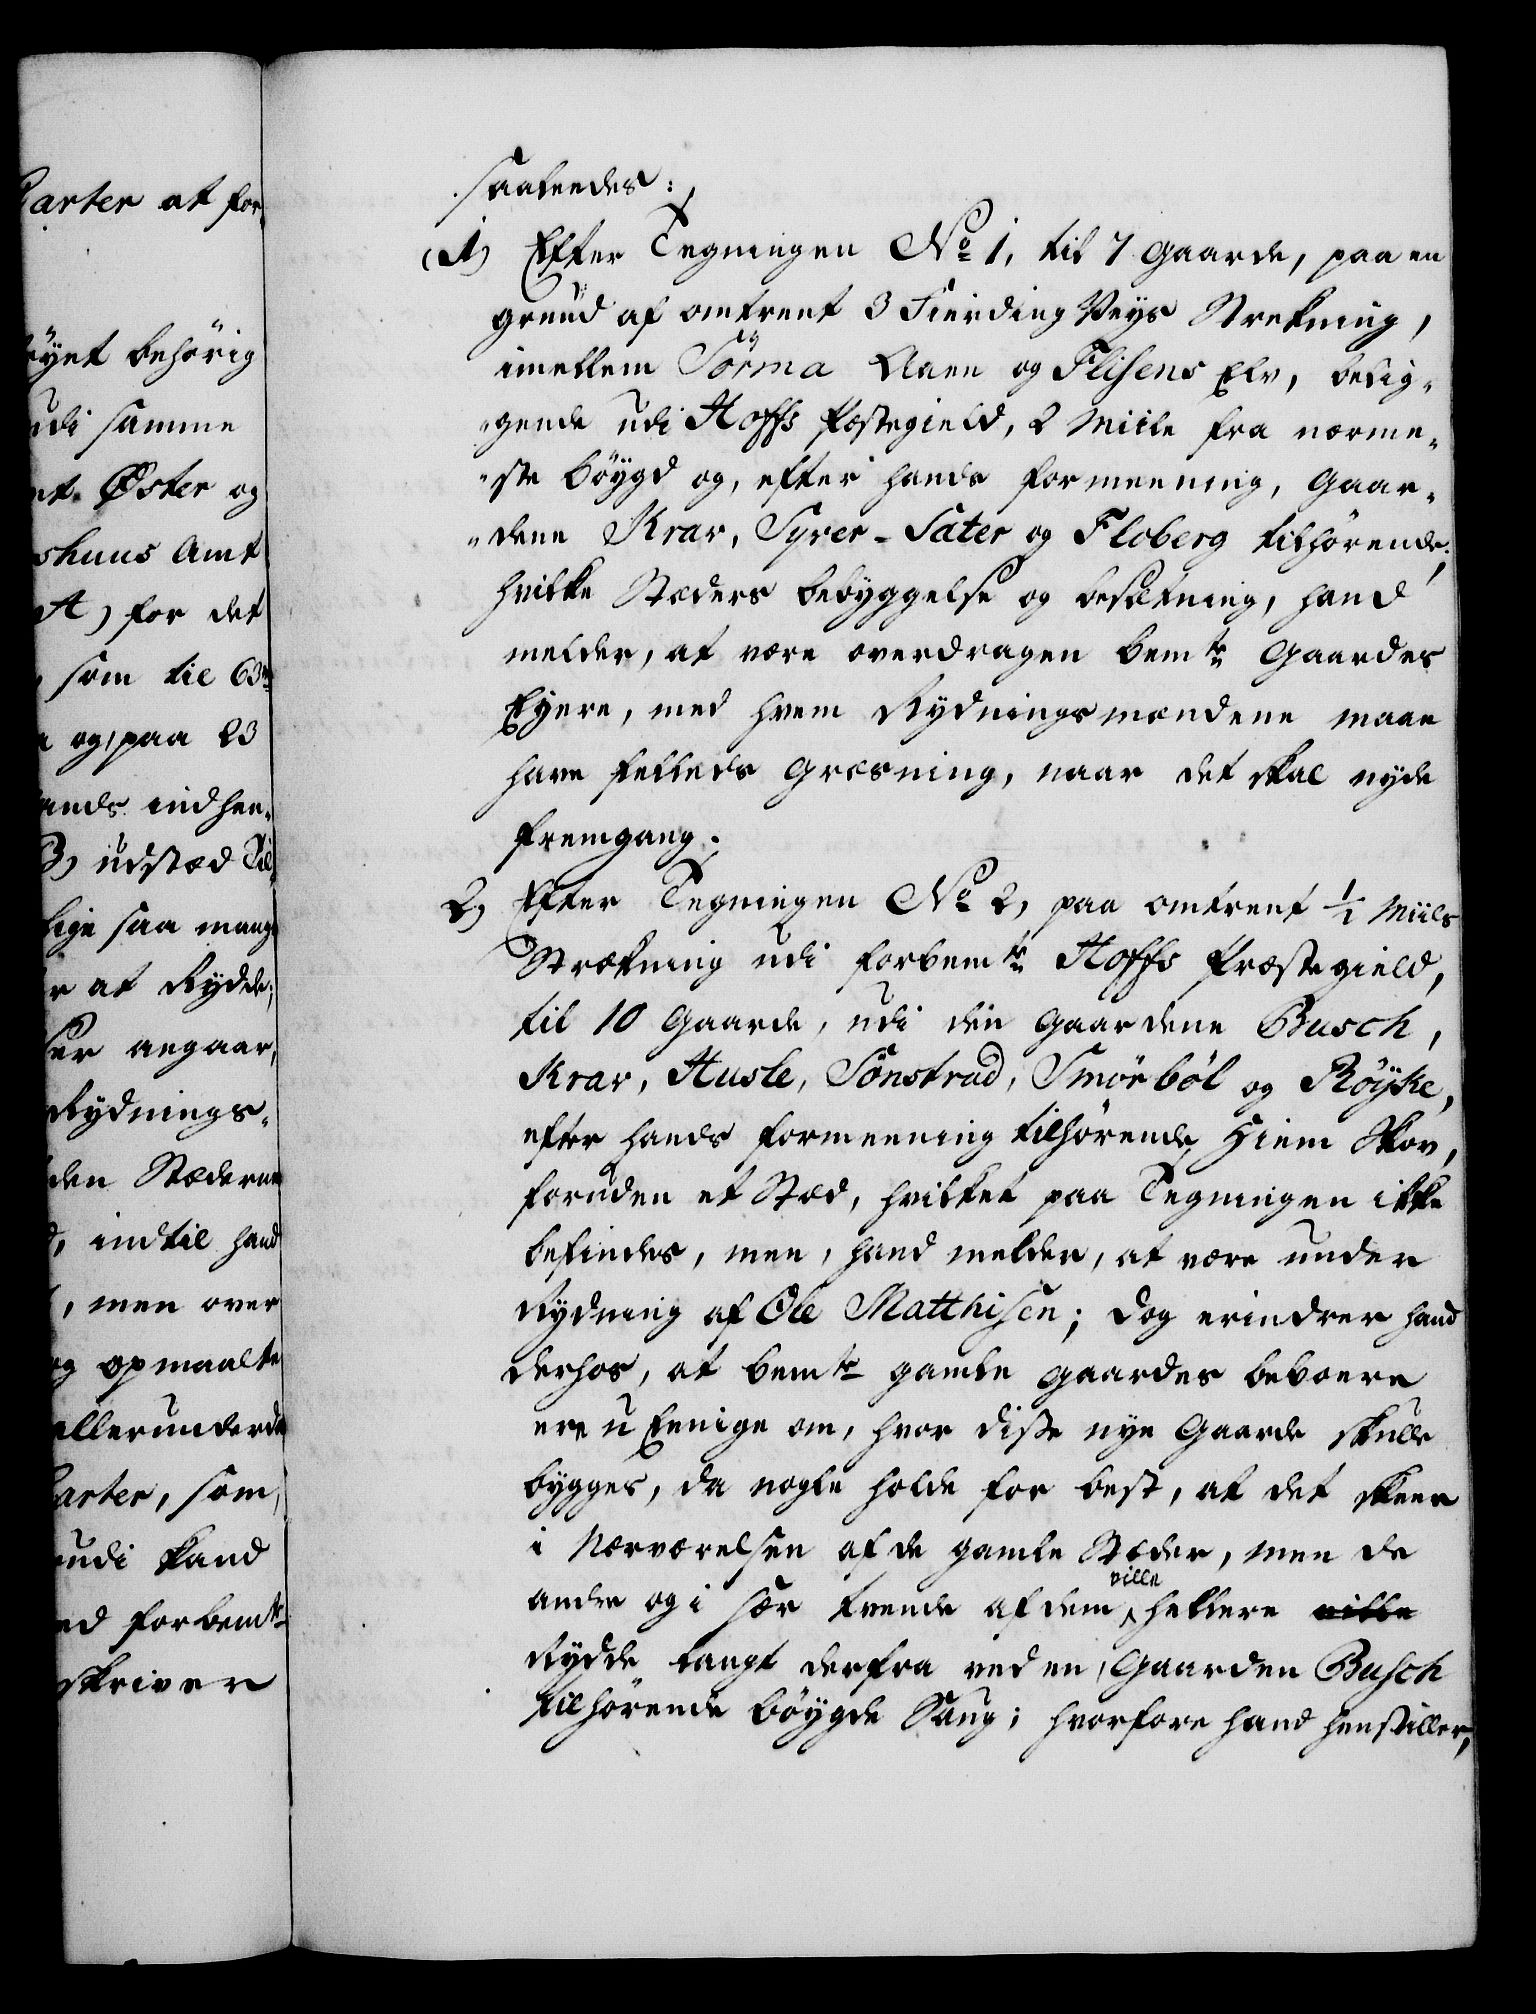 Carter at for-
øyet behörig
udi samme
nt. Øster og
shuus Amt
A) for det
som til 63
og, paa 23
ands indhen-
B) udstæd Til-
lige saa mange
r at Rydde;
ser angaar,
Rydnings-
den Stæderne
d, indtil hand
, men over
og opmaalte
allerunderda
Carter, som,
udi kand
ed forbemte
skriver
saaledes:
1) Efter Tegningen No 1, til 7 Gaarde, paa en
grund af omtrent 3 Fierding Veys Strekning,
imellem Sörma Aaen og Flisens Elv, belig-
gende udi Hoffs Præstegield, 2 Miile fra nærme-
ste Böygd og, efter hands formeening, Gaar-
dene Krar, Syrer-Sater og Floberg tilhörende;
hvilke Stæders bebyggelse og besætning, hand
melder, at være overdragen bemte Gaardes
Eyere, med hvem Rydningsmændene maae
have felleds Græsning, naar det skal nyde
fremgang.
2) Efter Tegningen No 2, paa omtrent 1/2 Miils
Strækning udi forbemte Hoffs Præstegield,
til 10 Gaarde, udi den Gaardene Busch,
Krar, Husle, Sönstrud, Smörböl og Röyke,
efter hands formeening tilhörende Hiem Skov,
foruden et Stæd, hvilket paa Tegningen ikke
befindes, men, hand melder, at være under
Rydning af Ole Matthisen; dog erindrer hand
derhos, at bemte gamle Gaardes beboere
ere u Eenige om, hvor disse nye Gaarde skulle
bygges, da nogle holde for best, at det skeer
i Nærværelsen af de gamle Stæder, men de
andre og i sær trende af dem ville hellere ville
Rydde langt derfra ved en, Gaarden Busch
tilhörende Böygde Saug; hvorfore hand henstiller,